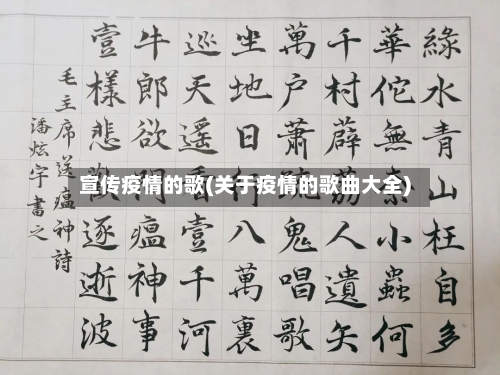 綠水青山枉自多
華佗無奈小蟲何
千村薜荔人遺矢
萬戶蕭疏鬼唱歌
坐地日行八萬裏
巡天遥看壹千河
牛郎欲問瘟神事
壹樣悲歡逐逝波
毛主席送瘟神詩
潘炫宇書之
宣传疫情的歌(关于疫情的歌曲大全)